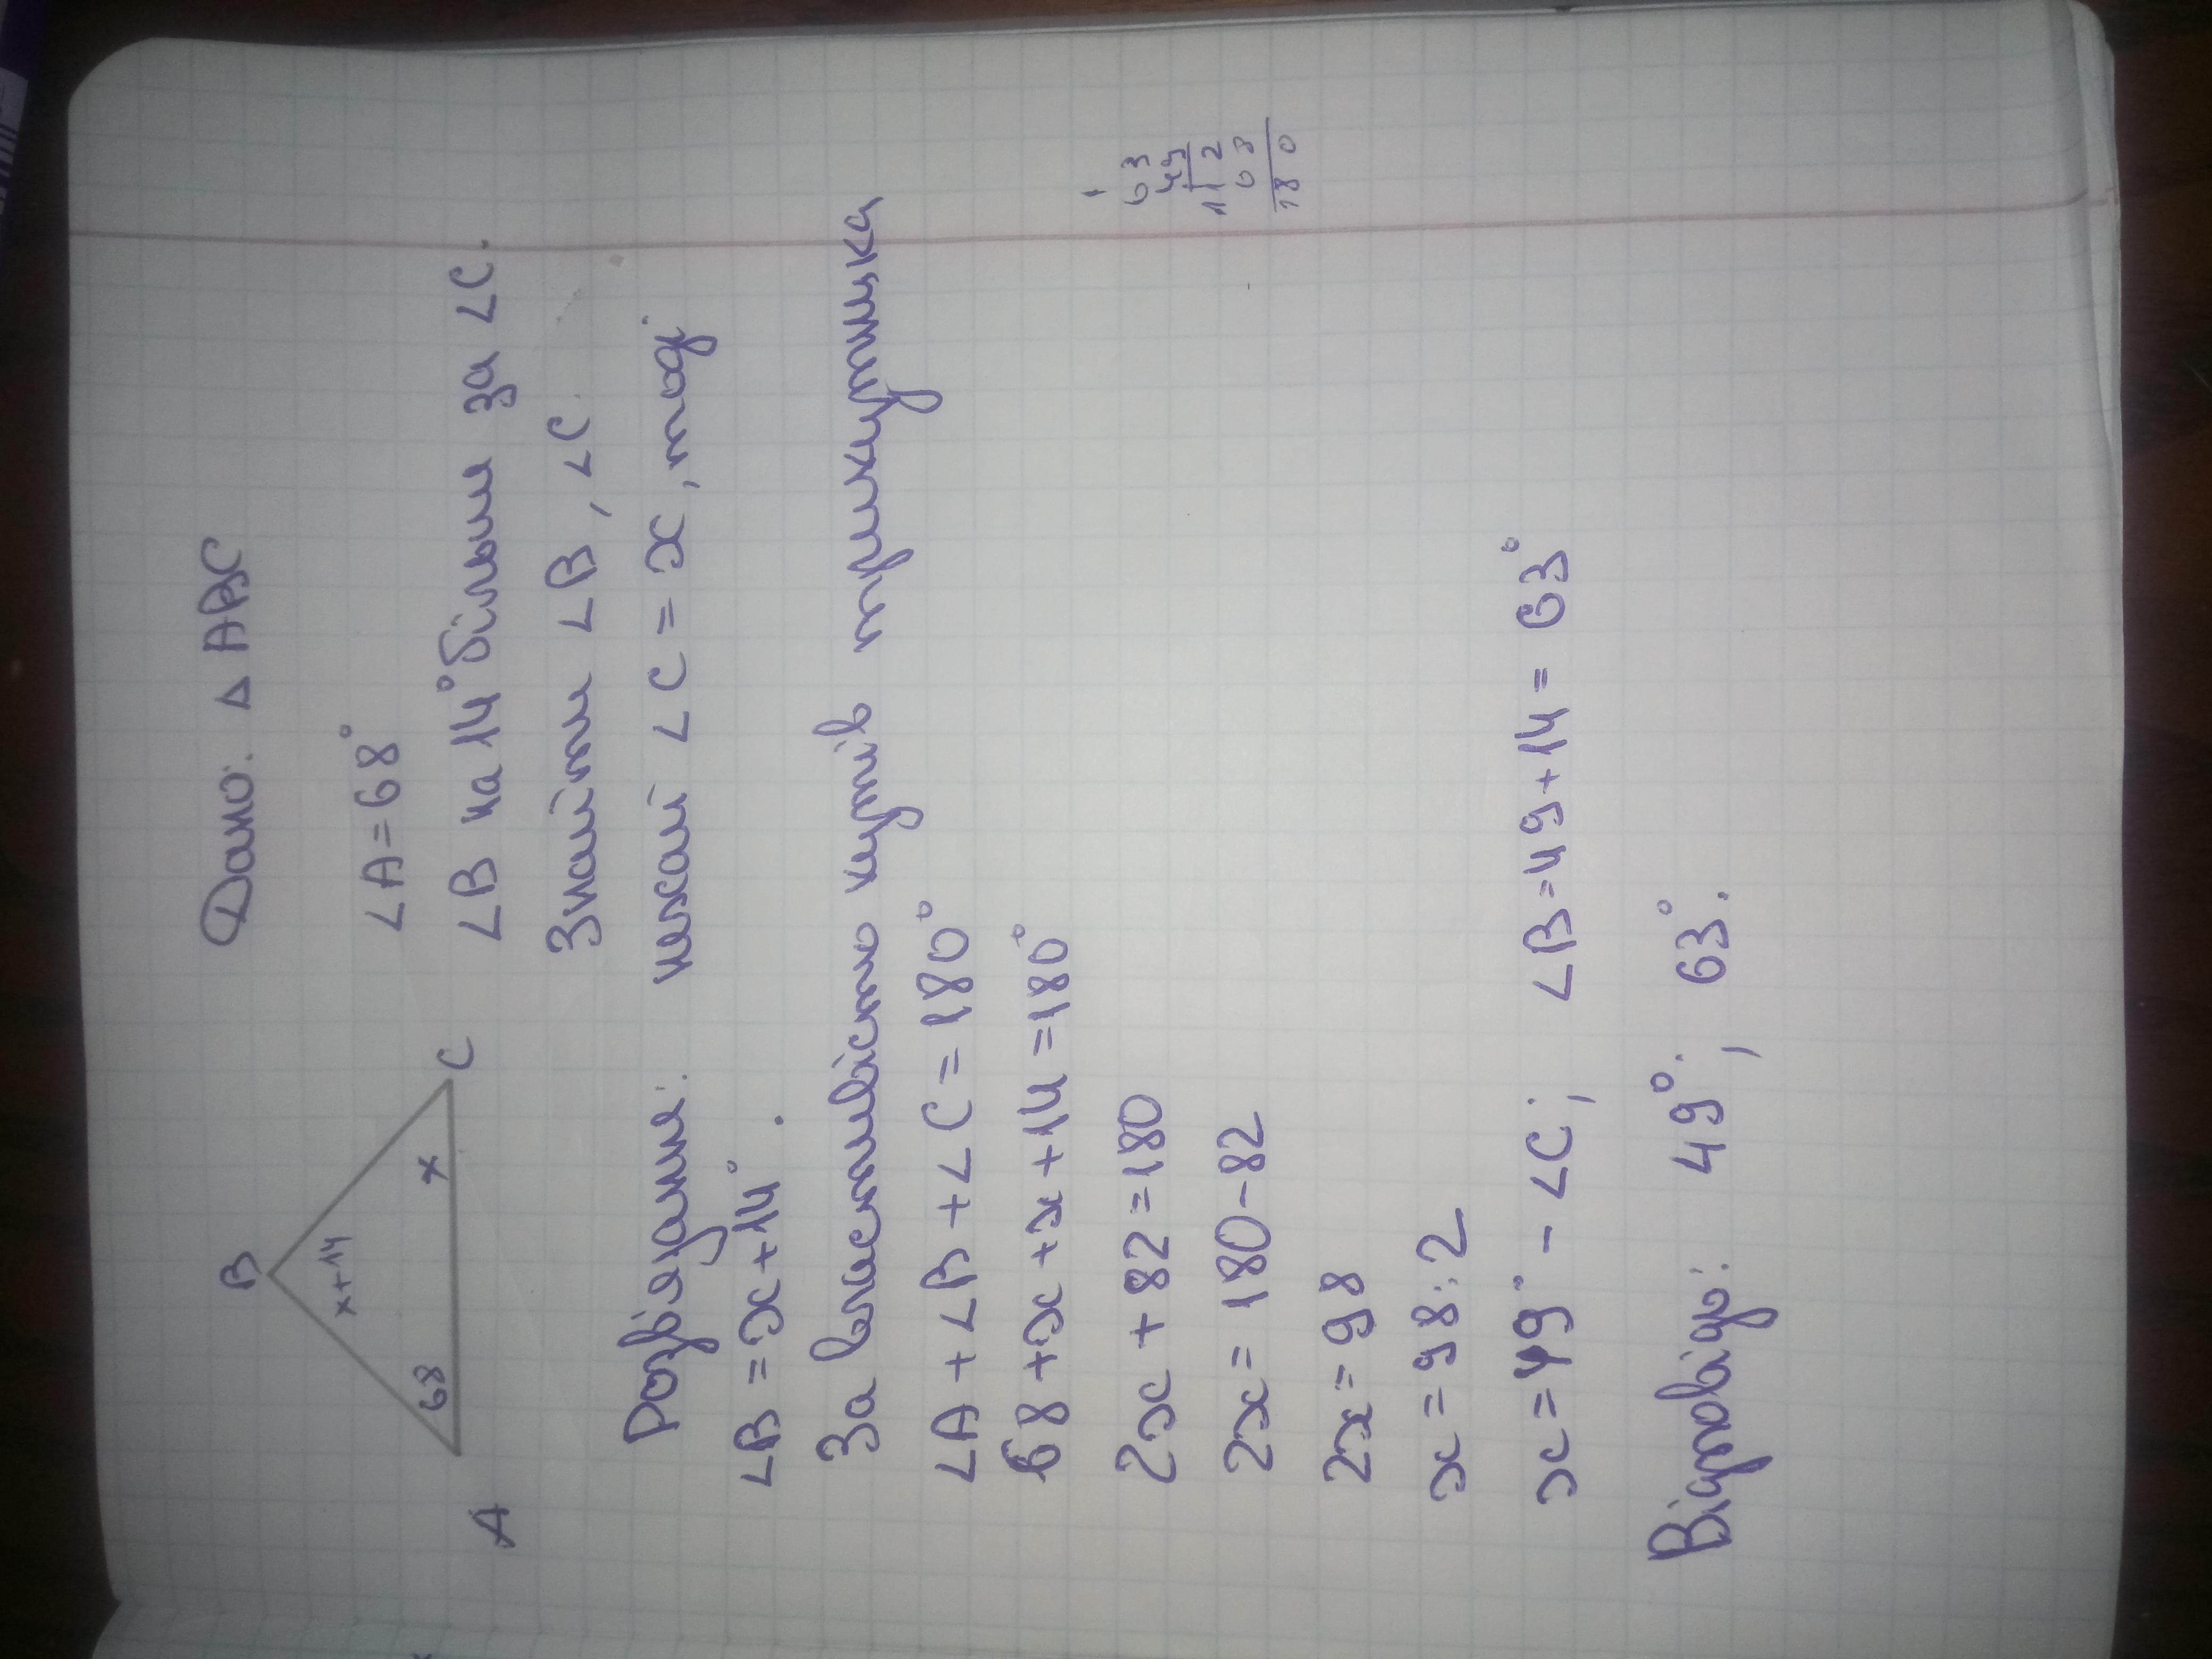 Дано: △ ABC
∠A=68°
∠B на 14° більший за ∠C.
Знайти ∠B, ∠C.
B
x+14
68
x
A
C
Розв'язування: нехай ∠C = x, тоді
∠B = x+14°.
За властивістю кутів трикутника
∠A + ∠B + ∠C = 180°
68 + x + x + 14 = 180°
2x + 82 = 180
2x = 180-82
2x = 98
x = 98:2
x = 49° - ∠C; ∠B = 49+14 = 63°
Відповідь: 49°; 63°.
1
63
49
112
68
180